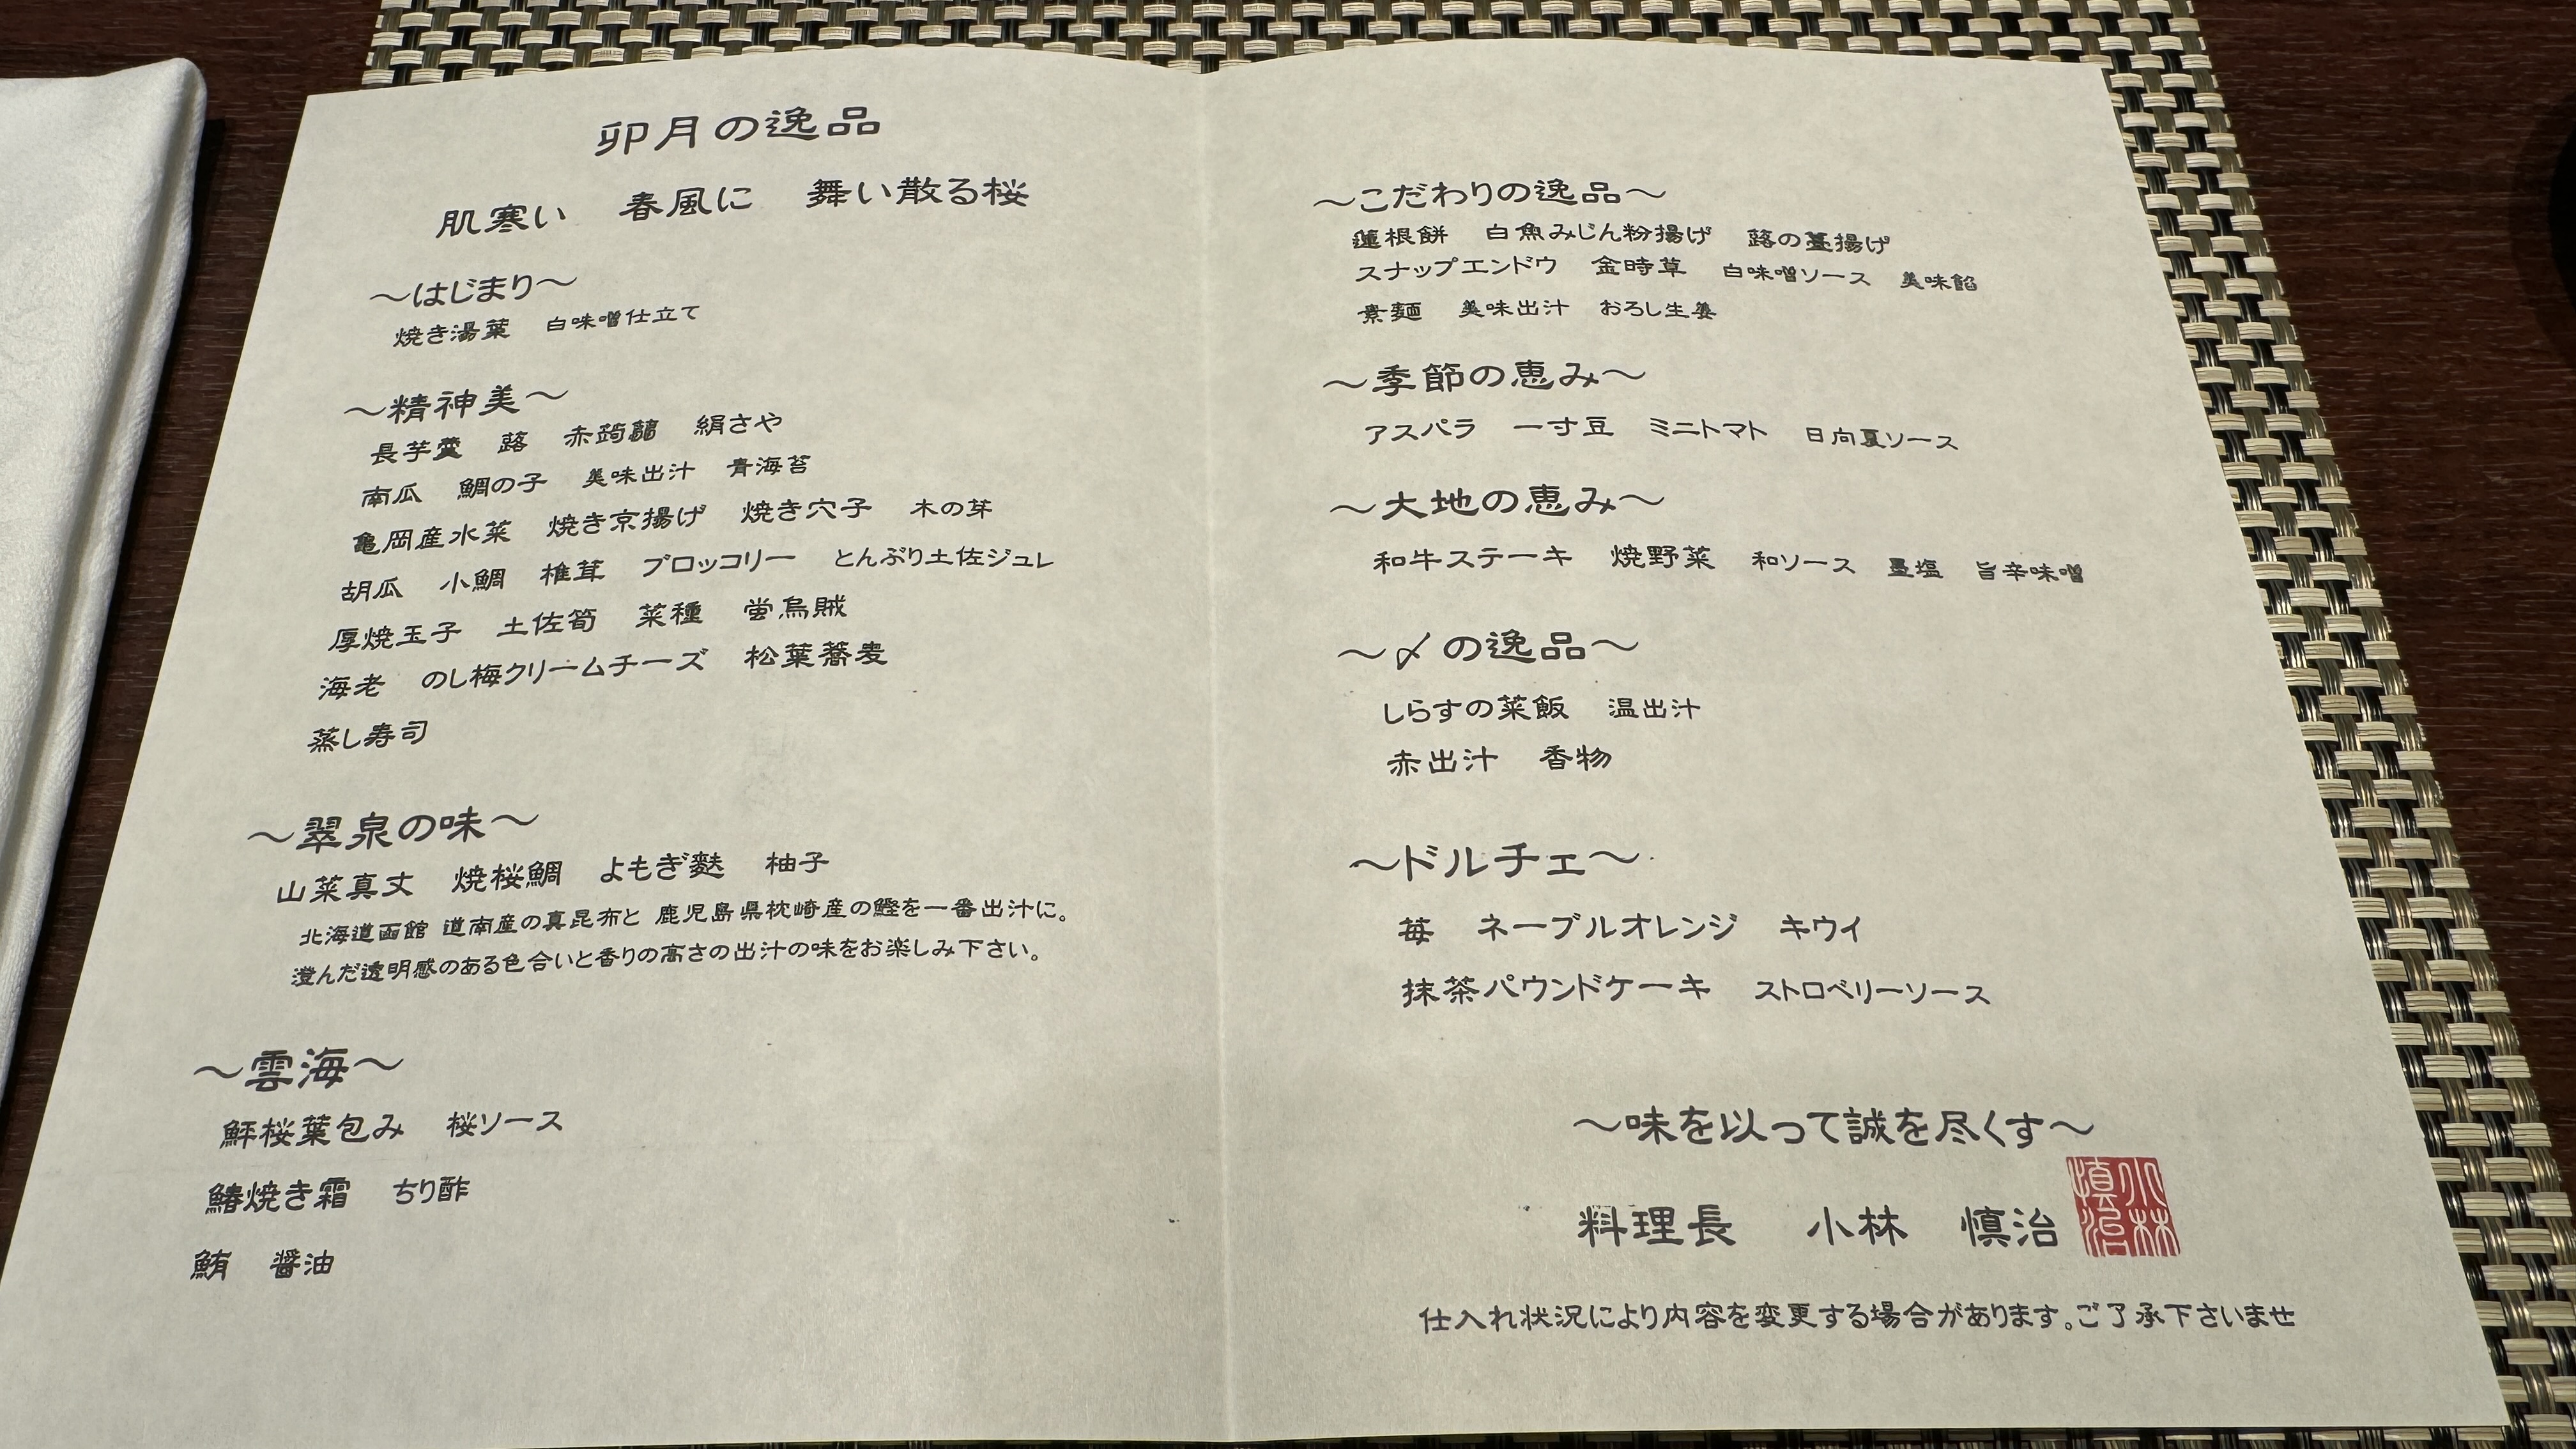 卯月の逸品
肌寒い 春風に 舞い散る桜
～はじまり～
焼き湯葉 白味噌仕立て
～精神美～
長芋羹 蕗 赤蒟蒻 絹さや
南瓜 鯛の子 美味出汁 青海苔
亀岡産水菜 焼き京揚げ 焼き穴子 木の芽
胡瓜 小鯛 椎茸 ブロッコリー とんぶり土佐ジュレ
厚焼玉子 土佐筍 菜種 蛍烏賊
海老 のし梅クリームチーズ 松葉蕎麦
蒸し寿司
～翠泉の味～
山菜真丈 焼桜鯛 よもぎ麩 柚子
北海道函館 道南産の真昆布と 鹿児島県枕崎産の鰹を一番出汁に。
澄んだ透明感のある色合いと香りの高さの出汁の味をお楽しみ下さい。
～雲海～
鮃桜葉包み 桜ソース
鰆焼き霜 ちり酢
鮪 醤油
～こだわりの逸品～
蓮根餅 白魚みじん粉揚げ 蕗の薹揚げ
スナップエンドウ 金時草 白味噌ソース 美味餡
素麺 美味出汁 おろし生姜
～季節の恵み～
アスパラ 一寸豆 ミニトマト 日向夏ソース
～大地の恵み～
和牛ステーキ 焼野菜 和ソース 墨塩 旨辛味噌
～〆の逸品～
しらすの菜飯 温出汁
赤出汁 香物
～ドルチェ～
苺 ネーブルオレンジ キウイ
抹茶パウンドケーキ ストロベリーソース
～味を以って誠を尽くす～
料理長 小林 慎治
小林慎治
仕入れ状況により内容を変更する場合があります。ご了承下さいませ